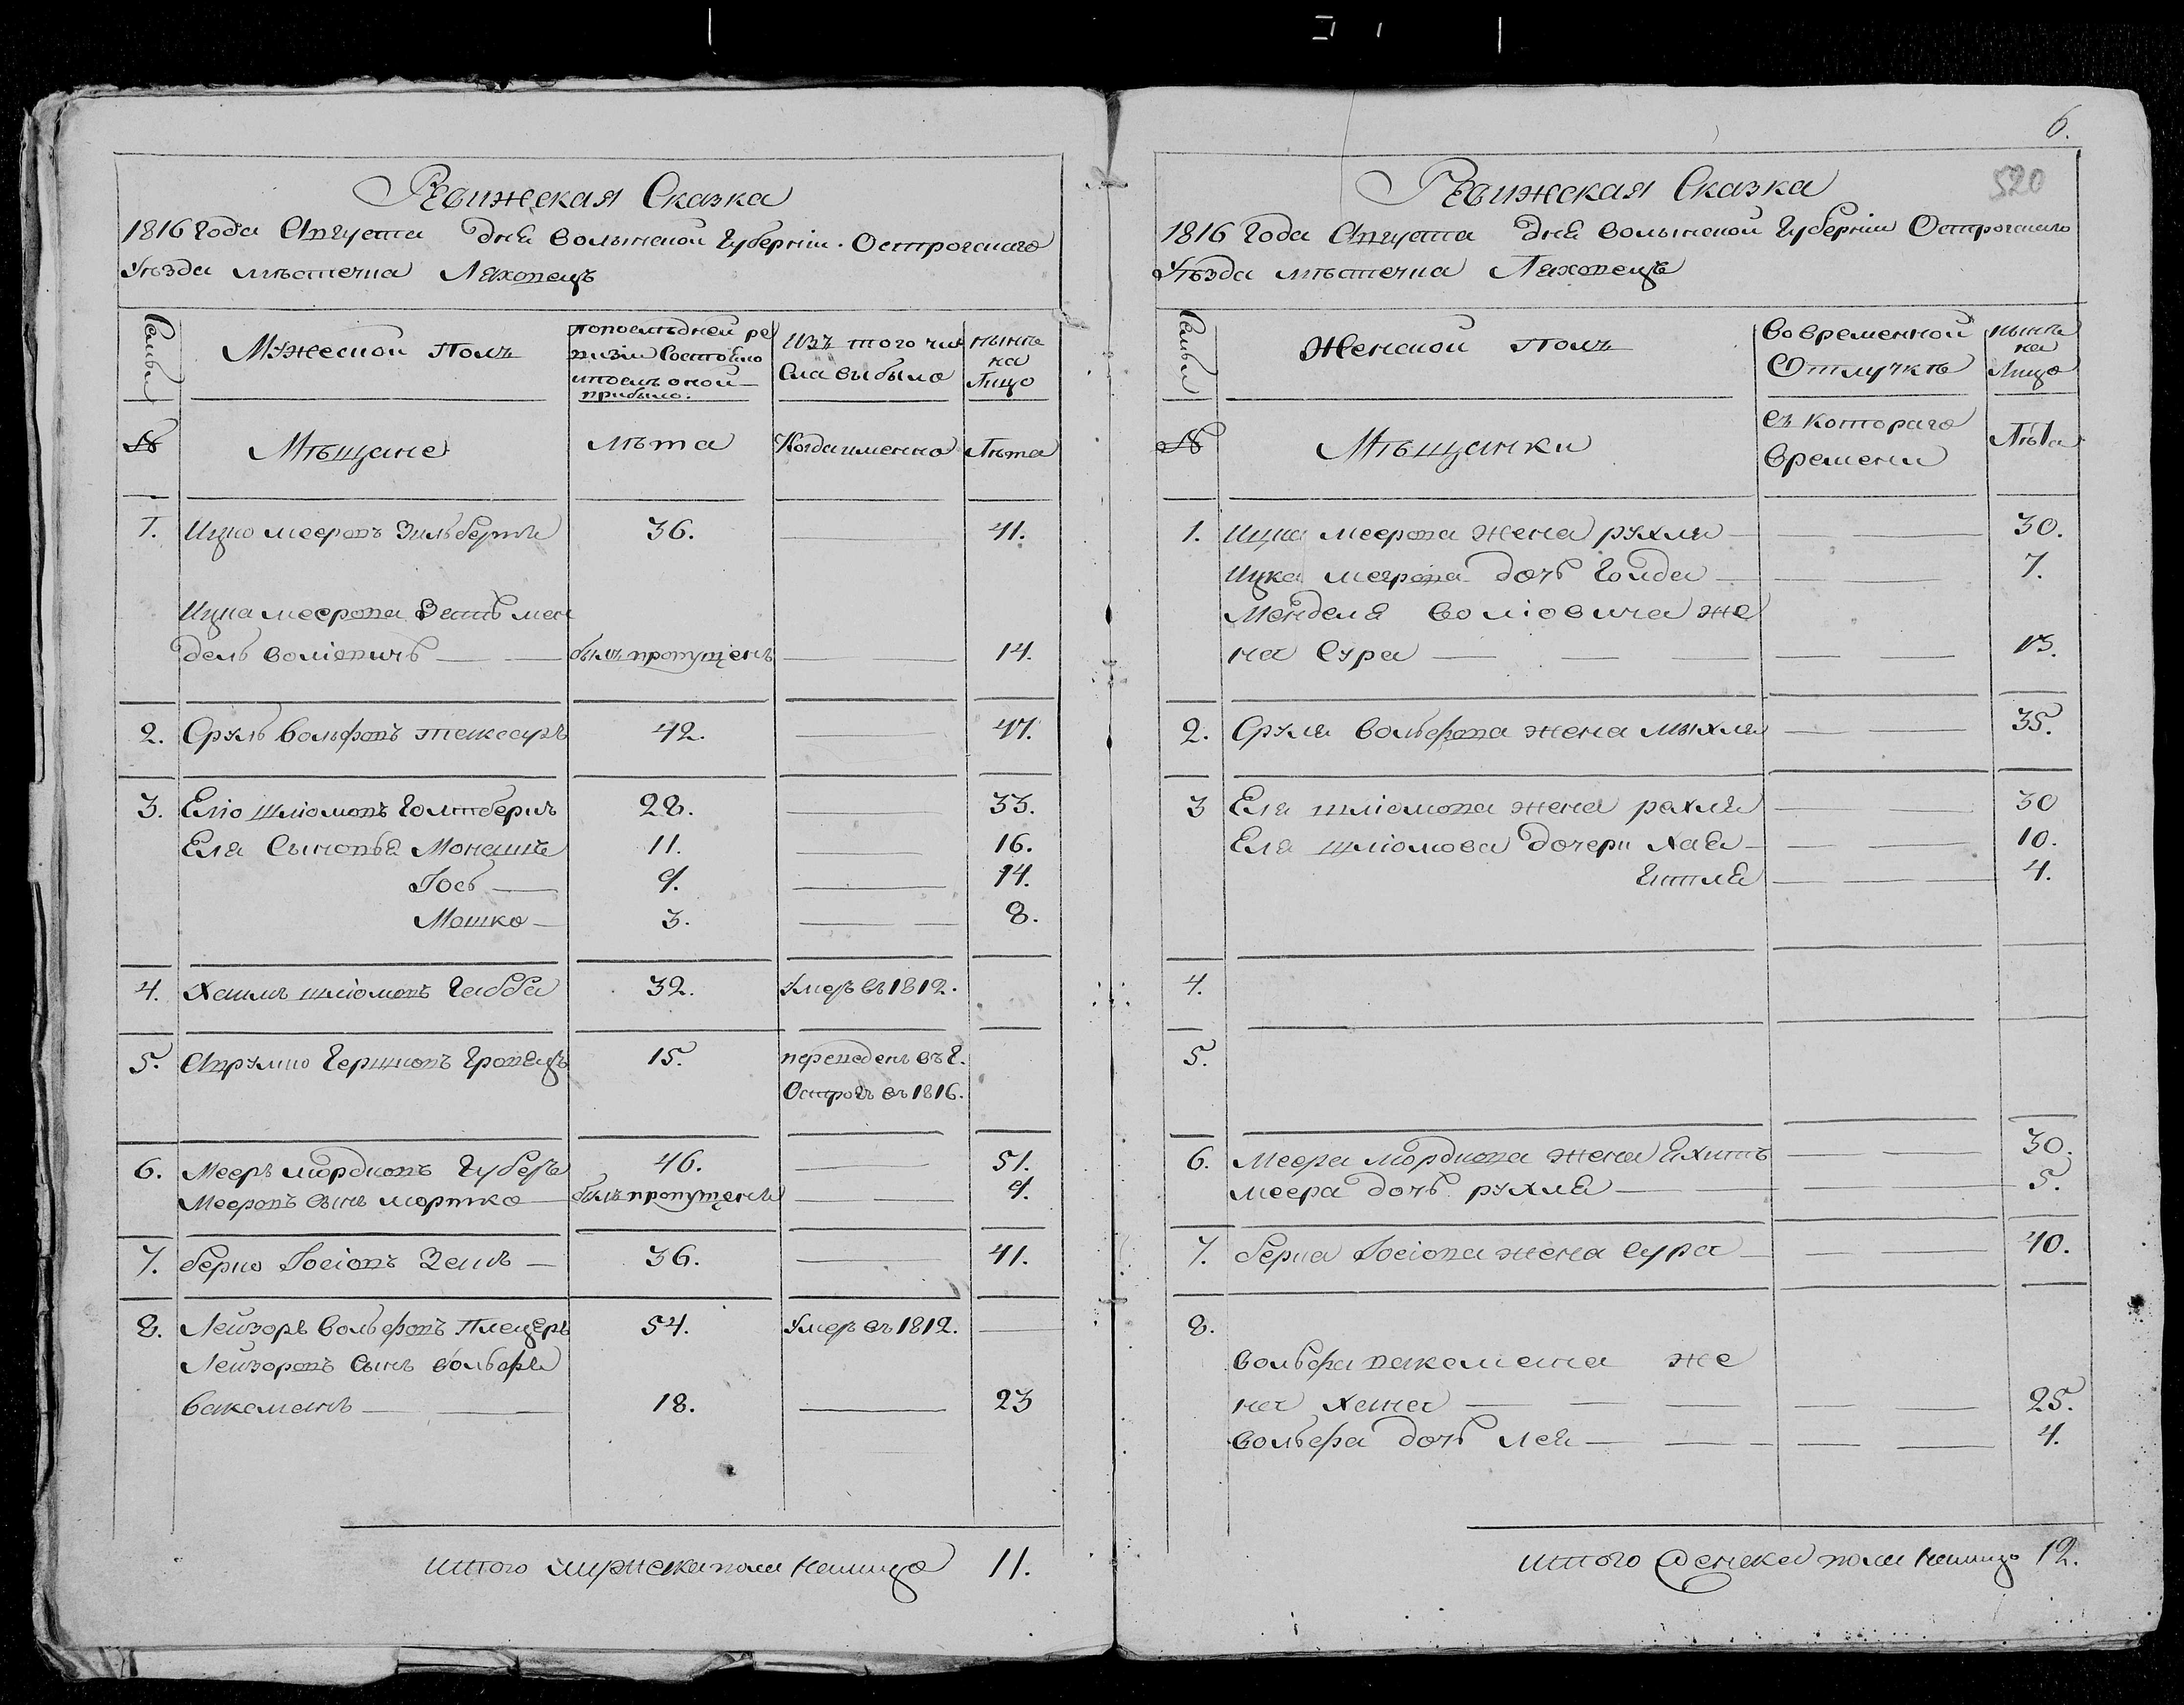 Ревижская Сказка
1816 Года Августа дня Волынской Губерніи Острогскаго
Уѣзда мѣстечка Ляховецъ
Семьи
Мужеской Полъ
попослѣдней ре
визіи Состояло
ипослѣ оной
прибыло.
Изъ того чи
сла выбыло
нынѣ
на
Лицо
№
Мѣщане
лѣта
Когда именно
Лѣта
1. Ицко мееровъ Зильберъ 36. 41.
Ицка меерова Зять мен
дель воліовичъ былъ пропущенъ 14.
2. Сруль вольфовъ 42. 47.
3. Еліо шліомовъ Голтберихъ 28. 33.
Еля Сыновья Монашъ 11. 16.
Іось 9. 14.
Мошко 3. 8.
4. Хаимъ шліомовъ Габба 32. умеръ въ 1812.
5. Аврумко Гершковъ 15. переведенъ въ Г.
Острогъ въ 1816.
6. Мееръ мордковъ Губеръ 46. 51.
Мееровъ сынъ мортко былъ пропущенъ 9.
7. берко Іосіовъ Зацъ 36. 41.
8. Лейзоръ вольфовъ Плецеръ 54. умеръ въ 1812.
Лейзоровъ сынъ вольфъ
вакоманъ 18. 23
итого мужеска пола налицо 11.
6.
520
Ревижская Сказка
1816 Года Августа дня Волынской Губерніи Острогскаго
Уѣзда мѣстечка Ляховецъ
Семьи
Женской полъ
во временной
Отлучкѣ
нынѣ
на
Лицо
№
Мѣщанки
съ котораго
времени
Лѣта
1. Ицка меерова жена рухля 30.
Ицка меерова дочь Голда 7.
Менделя воліовича же
на Сура 13.
2. Сруля вольфова жена мыхля 35.
3 Еля шліомова жена рахля 30
Еля шліомова дочери Хая 10.
Гитля 4.
4.
5.
6. Меера мордкова жена 30.
меера дочь рухля 5.
7. берка Іосіова жена сура 40.
8.
вольфа вакомана же
на хана 25.
вольфа дочь лея 4.
итого женска пола налицо 12.